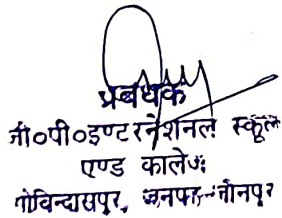 प्रबंधक
जी०पी०इण्टरनेशनल स्कूल
एण्ड कालेज
गोविन्दासपुर, जनपद-जौनपुर